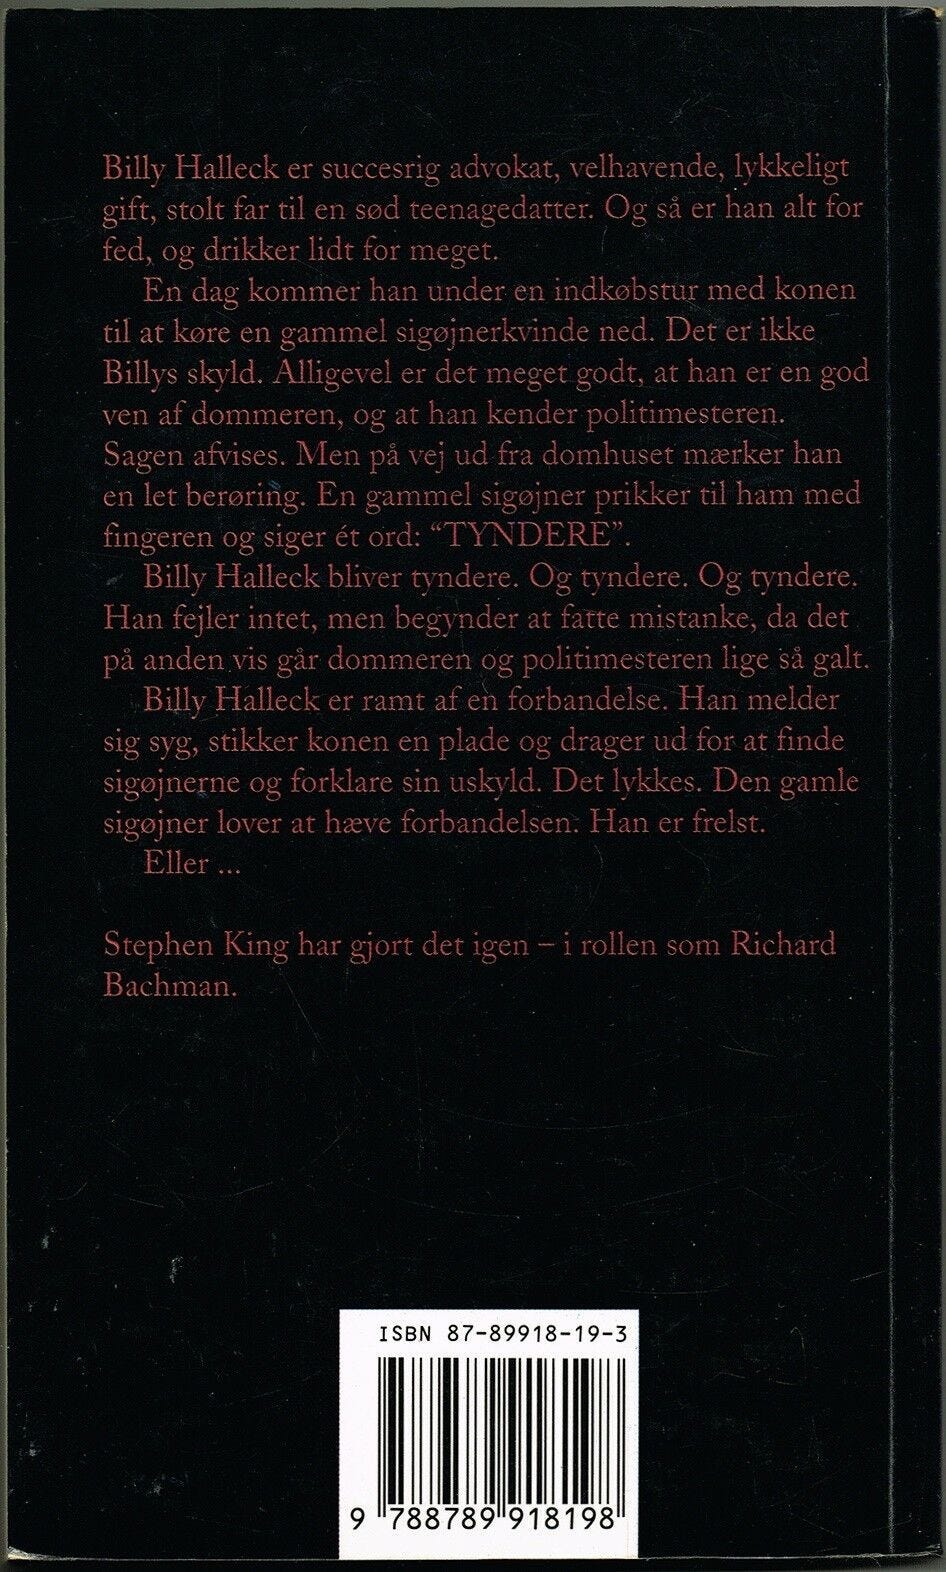 Billy Halleck er succesrig advokat, velhavende, lykkeligt
gift, stolt far til en sød teenagedatter. Og så er han alt for
fed, og drikker lidt for meget.
En dag kommer han under en indkøbstur med konen
til at køre en gammel sigøjnerkvinde ned. Det er ikke
Billys skyld. Alligevel er det meget godt, at han er en god
ven af dommeren, og at han kender politimesteren.
Sagen afvises. Men på vej ud fra domhuset mærker han
en let berøring. En gammel sigøjner prikker til ham med
fingeren og siger ét ord: “TYNDERE”.
Billy Halleck bliver tyndere. Og tyndere. Og tyndere.
Han fejler intet, men begynder at fatte mistanke, da det
på anden vis går dommeren og politimesteren lige så galt.
Billy Halleck er ramt af en forbandelse. Han melder
sig syg, stikker konen en plade og drager ud for at finde
sigøjnerne og forklare sin uskyld. Det lykkes. Den gamle
sigøjner lover at hæve forbandelsen. Han er frelst.
Eller ...
Stephen King har gjort det igen – i rollen som Richard
Bachman.
ISBN 87-89918-19-3
9 788789 918198